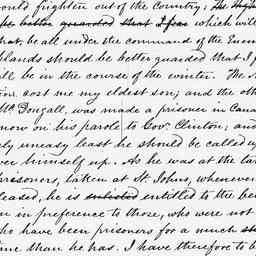 ould frighten out of the country; the High
be better guarded that I fear which will
that, be all under the command of the Enem
hlands should be better guarded that I f
ll be in the course of the winter. The
ion cost me my eldest son; and the othe
McDougall, was made a prisoner in Cana
now on his parole to Govr. Clinton; and
ly uneasy least he should be called up
ver himself up. As he was at the ta
prisoners, taken at St Johns, whenever
leased, he is enlisted entitled to the be
n in preference to those, who were not
ho have been prisoners for a much sh
time than he has. I have therefore to b